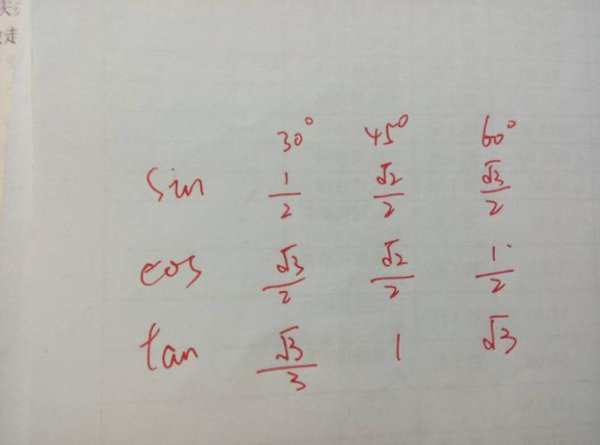 30° 45° 60°
sin 1/2 √2/2 √3/2
cos √3/2 √2/2 1/2
tan √3/3 1 √3